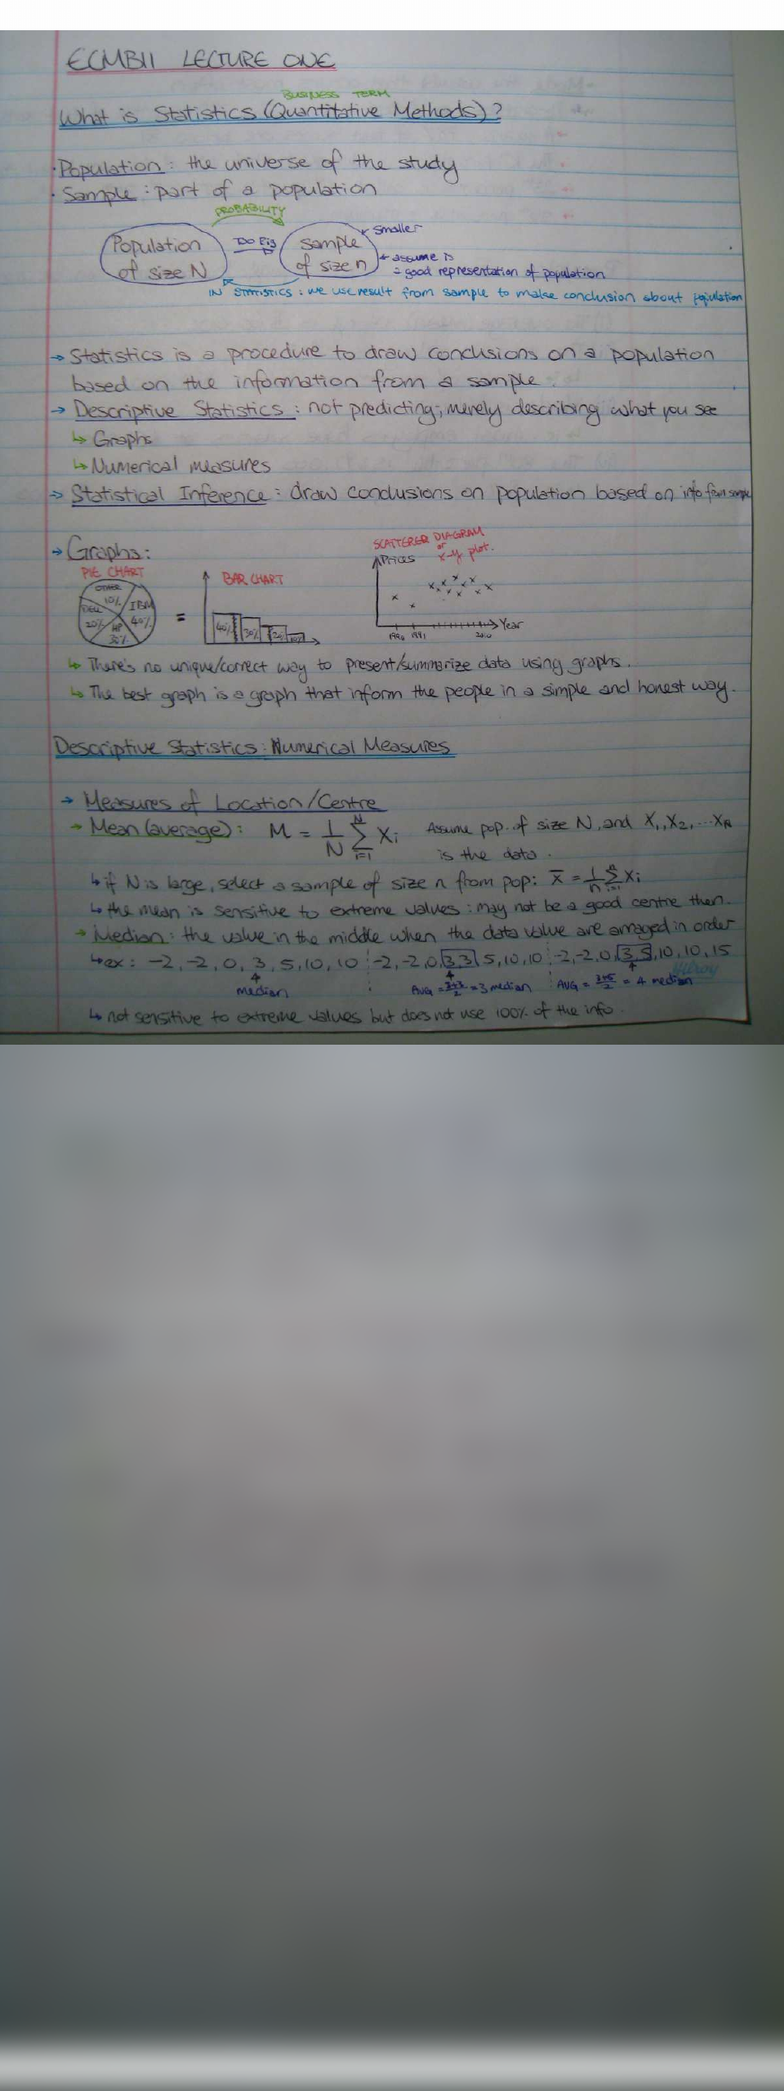 ECMB11 LECTURE ONE
BUSINESS TERM
What is Statistics (Quantitative Methods)?
· Population: the universe of the study
· Sample: part of a population
PROBABILITY
Population of size N
sample of size n
← smaller
← assume is
= good representation of population
IN STATISTICS: we use result from sample to make conclusion about population
→ Statistics is a procedure to draw conclusions on a population
based on the information from a sample.
→ Descriptive Statistics: not predicting; merely describing what you see
↳ Graphs
↳ Numerical measures
→ Statistical Inference: draw conclusions on population based on info from sample
→ Graphs:
PIE CHART
OTHER 10%
IBM 40%
DELL 20%
HP 30%
=
BAR CHART
40% 30% 20 10%
SCATTERER DIAGRAM
or
x-y plot.
PRICES
Year
1990 1991 2010
↳ There's no unique/correct way to present/summarize data using graphs.
↳ The best graph is a graph that inform the people in a simple and honest way.
Descriptive Statistics: Numerical Measures
→ Measures of Location/Centre
→ Mean (average): M = 1/N ∑ᵢ₌₁ᴺ Xᵢ Assume pop. of size N, and X₁, X₂, ... Xₙ
is the data.
↳ if N is large, select a sample of size n from pop: x̄ = 1/n ∑ᵢ₌₁ⁿ Xᵢ
↳ the mean is sensitive to extreme values: may not be a good centre then.
→ Median: the value in the middle when the data value are arranged in order
↳ ex: -2, -2, 0, 3, 5, 10, 10 ¦ -2, -2, 0, 3, 3, 5, 10, 10 ¦ -2, -2, 0, 3, 5, 10, 10, 15
median
AVG = 3+3/2 = 3 median
AVG = 3+5/2 = 4 median
↳ not sensitive to extreme values but does not use 100% of the info.